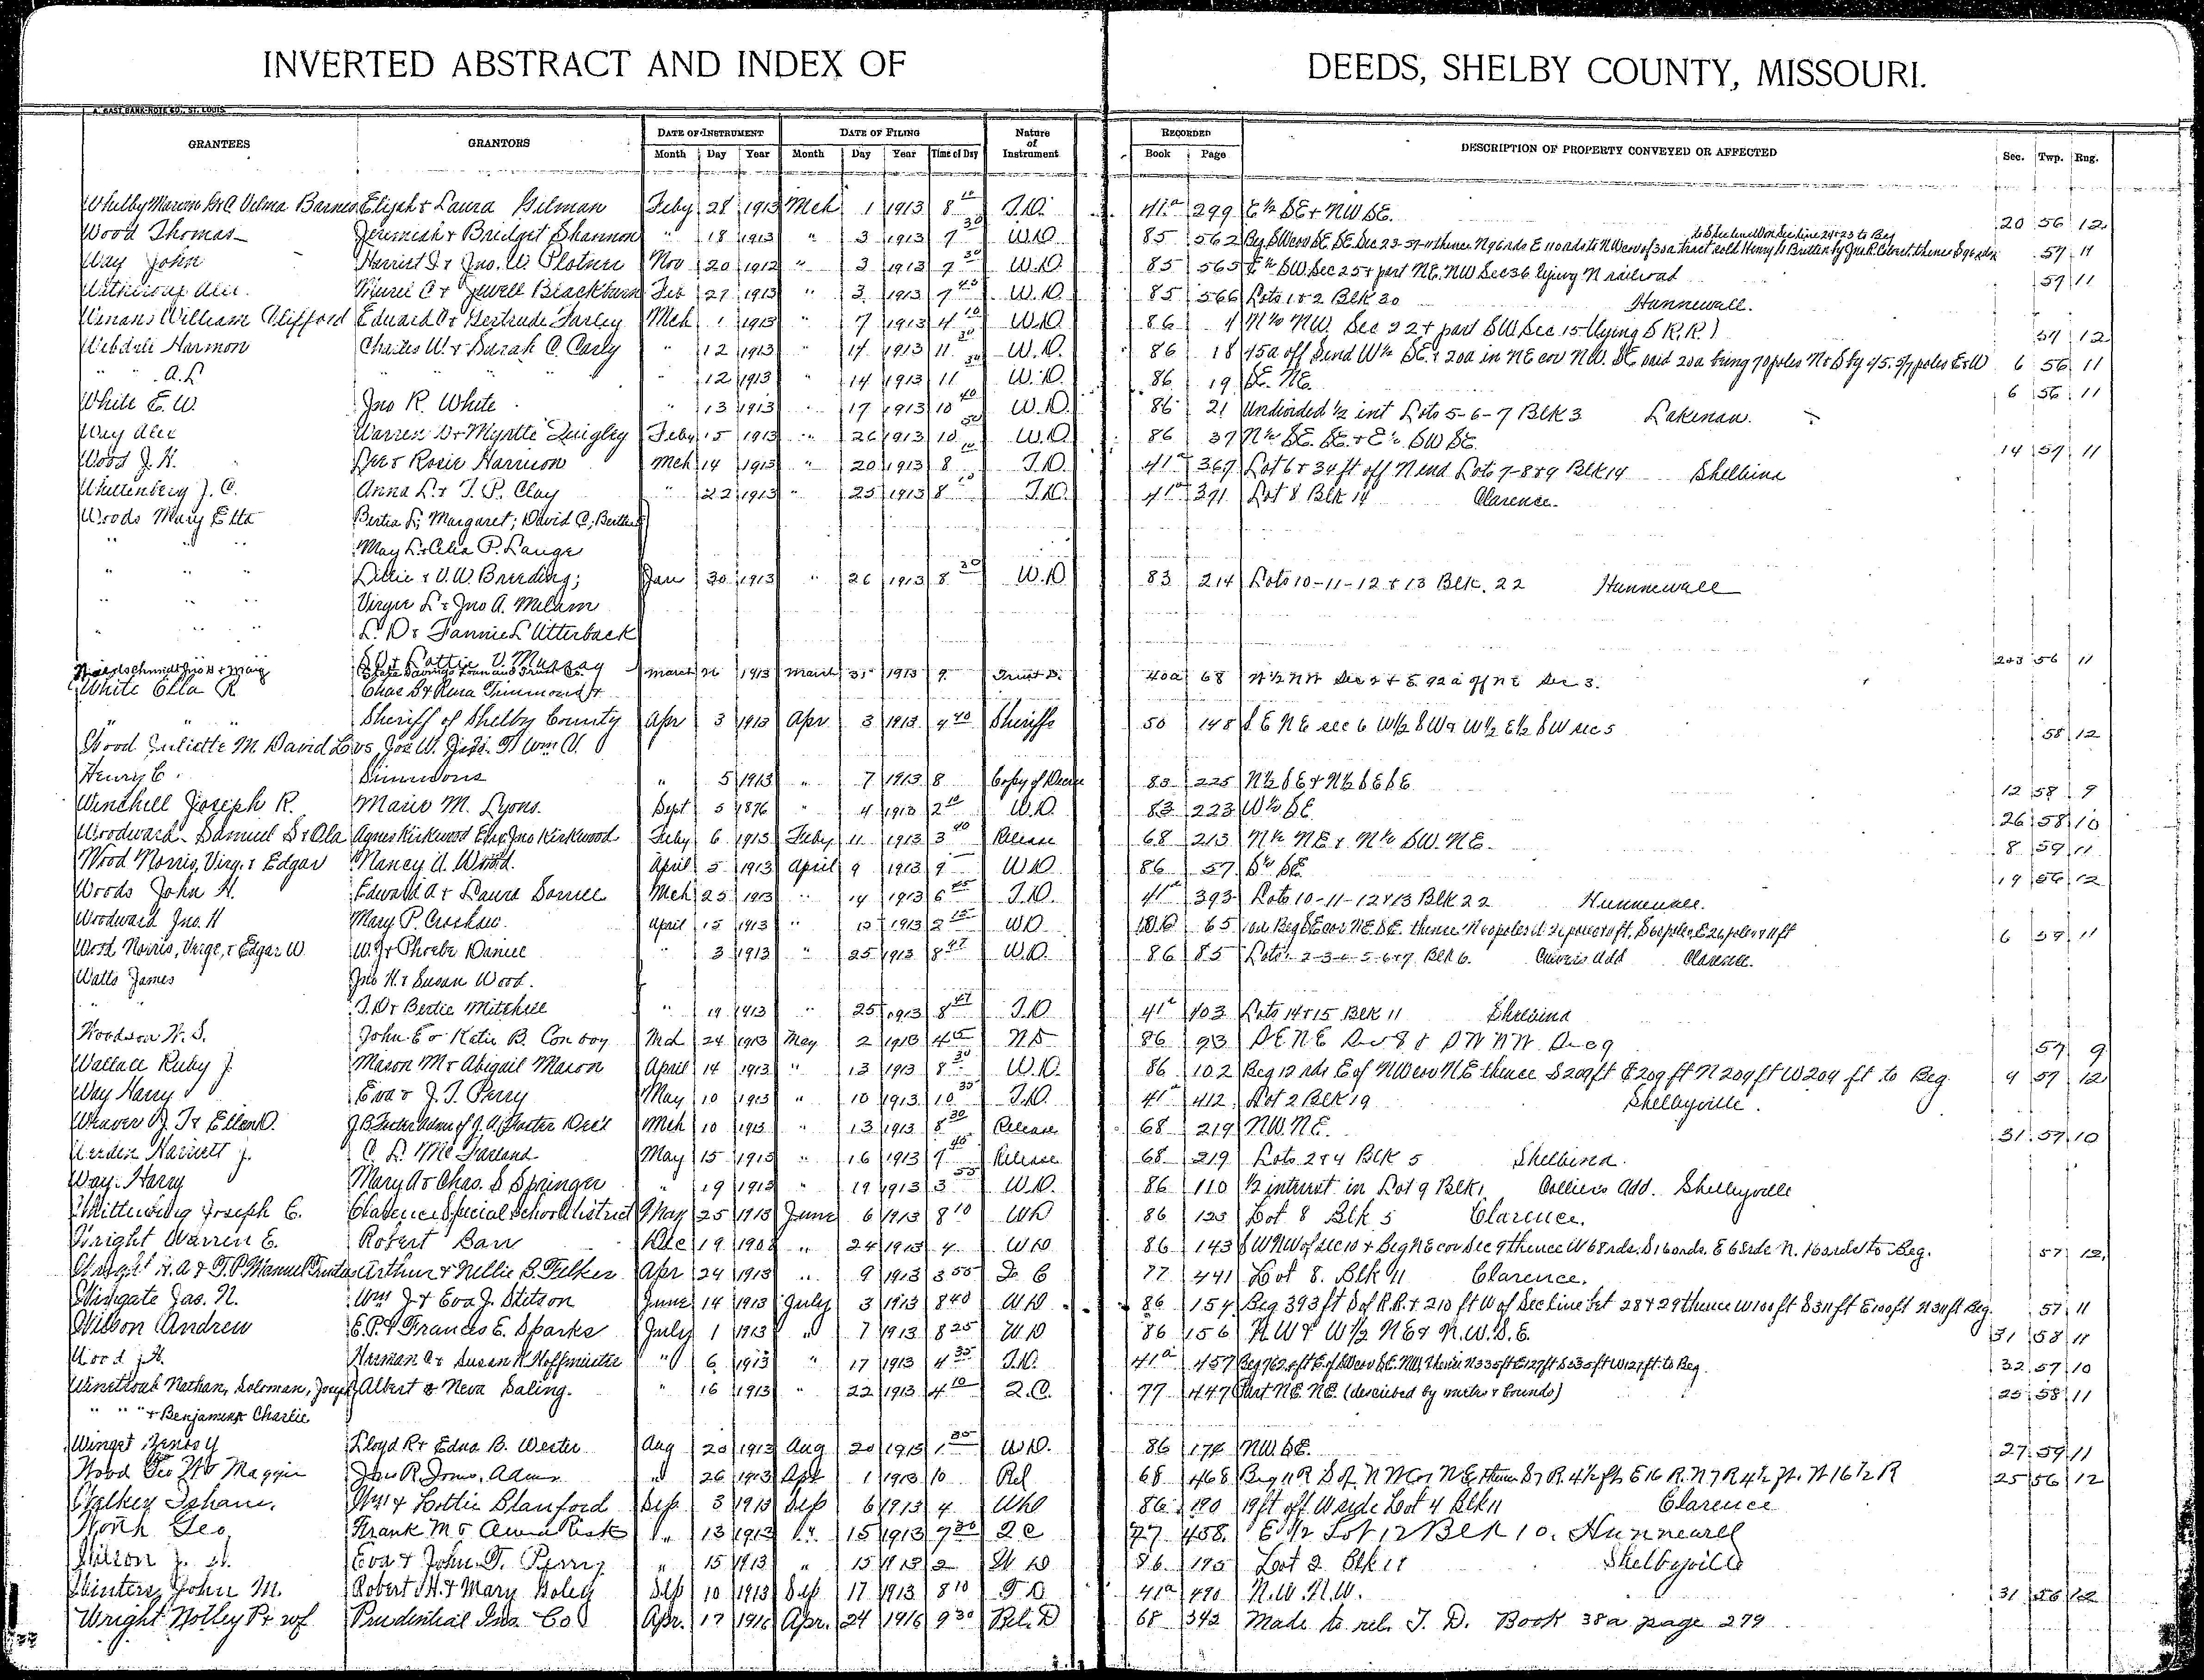 INVERTED ABSTRACT AND INDEX OF DEEDS, SHELBY COUNTY, MISSOURI.
A. GAST BANK-NOTE CO., ST. LOUIS.
GRANTEES GRANTORS DATE OF INSTRUMENT DATE OF FILING Nature of Instrument RECORDED DESCRIPTION OF PROPERTY CONVEYED OR AFFECTED Sec. Twp. Rng.
Month Day Year Month Day Year Time of Day Book Page
Barnes Elijah & Laura Gilman Feby 28 1913 Mch 1 1913 8 10 T.D. 41a 299 E½ SE & NW SE. 20 56 12
Wood Thomas Jeremiah & Bridget Shannon " 18 1913 " 3 1913 7 30 W.D 85 562 57 11
Way John Harriet I & Jno. W. Plotner Nov 20 1912 " 3 1913 7 30 W.D. 85 565 E½ SW. Sec 25 & part NE. NW Sec 36 lying N railroad 57 11
Jewell Blackburn Feb 27 1913 " 3 1913 7 45 W.D. 85 566 Lots 1 & 2 Blk 20 Hunnewell.
William Clifford Edward & Gertrude Farley Mch 1 1913 " 7 1913 4 10 W.D 86 4 N½ NW. Sec 22 & part SW Sec 15 (lying S R.R.) 57 12
Harmon Charles W. & Sarah C. Carly " 12 1913 " 14 1913 11 W.D. 86 18 45a off S end W½ SE. & 20a in NE cor NW. SE said 20a being 70 poles N & S by 45.5/7 poles E & W 6 56 11
" A.L " " " 12 1913 " 14 1913 11 W.D. 86 19 SE. NE. 6 56 11
White E. W. Jno R. White " 13 1913 " 17 1913 10 40 W.D. 86 21 Undivided ½ int Lots 5-6-7 Blk 3 Lakenan.
Way Alec Warren & Myrtle Quigley Feby 15 1913 " 26 1913 10 50 W.D 86 37 N½ SE. SE. & E½ SW SE. 14 57 11
Wood J. H. Lee & Rosie Harrison Mch 14 1913 " 20 1913 8 10 T.D. 41a 367 Lot 6 & 34 ft off N end Lots 7-8 & 9 Blk 14 Shelbina
Whittenberg J. C. Anna L. & T. P. Clay " 22 1913 " 25 1913 8 10 T.D. 41a 371 Lot 8 Blk 14 Clarence.
Woods Mary Etta Bertia L; Margaret; David C; Bertha
" " May L & Celia P. Lange
" " Lillie & V. W. Breeding; Jan 30 1913 " 26 1913 8 30 W.D 83 214 Lots 10-11-12 & 13 Blk. 22 Hunnewell
" " Virgie L & Jno A. Milam
" " L. D & Fannie L Utterback
Lottie V. Murray
Jno H & Mary State Savings Loan and Trust Co. March 26 1913 March 31 1913 9 Trust D. 40a 68 N½ NW Sec 2 & E. 92 a off NE Sec 3. 2&3 56 11
White Ella R Chas S & Rena Timmons by
" " Sheriff of Shelby County Apr 3 1913 Apr 3 1913 4 40 Sheriffs 50 148 S E N E sec 6 W½ S W & W½ E½ S W sec 5 58 12
Wood Juliette M. David L vs Jos W. Wm V.
Henry C. Simmons " 5 1913 " 7 1913 8 Copy of Decree 83 225 N½ S E & N½ S E S E 12 58 9
Winchell Joseph R. Marie M. Lyons. Sept 5 1876 " 4 1913 2 10 W.D. 83 223 W½ SE 26 58 10
Woodward Samuel S & Ola Agnes Kirkwood Jno Kirkwood Feby 6 1913 Feby 11 1913 3 40 Release 68 213 N½ NE & N½ SW. NE. 8 59 11
Wood Morris, Virg. & Edgar Nancy A. Wood. April 5 1913 April 9 1913 9 W.D 86 57 S½ SE 19 56 12
Woods John H. Edward A & Laura Sorrell Mch 25 1913 " 14 1913 6 45 T.D. 41a 393 Lots 10-11-12 & 13 Blk 22 Hunnewell.
Woodward Jno. H Mary P. Crashaw. April 15 1913 " 15 1913 2 15 W.D 86 65 6 59 11
Wood Norris, Virge, & Edgar W W. J & Phoebe Daniel " 3 1913 " 25 1913 8 47 W.D. 86 85 Lots 1-2-3-4-5-6 & 7 Blk 6. add Clarence.
Watts James Jno H. & Susan Wood.
" " T. D & Bertie Mitchell " 19 1913 " 25 1913 8 47 T.D 41a 403 Lots 14 & 15 Blk 11 Shelbina
Woodson W. S. John E & Katie B. Conboy Mch 24 1913 May 2 1913 4 15 W D 86 93 S E N E Sec 8 & S W N W Sec 9 57 9
Wallace Ruby J. Mason M & Abigail Mason April 14 1913 " 13 1913 8 30 W.D. 86 102 Beg 12 rds E of NW cor NE thence S 209 ft E 209 ft N 209 ft W 209 ft to Beg. 4 57 12
Way Harry Eva & J. T. Perry May 10 1913 " 10 1913 10 35 T.D. 41a 412 Lot 2 Blk 19 Shelbyville.
Weaver J. T & Ellen D. Mch 10 1913 " 13 1913 8 30 Release 68 219 NW. NE. 31 57 10
Harriett J. C. L. McFarland May 15 1913 " 16 1913 9 45 Release 68 219 Lots 2 & 4 Blk 5 Shelbina.
Way Harry Mary A & Chas. S Springer " 19 1913 " 19 1913 3 55 W.D. 86 110 ½ interest in Lot 9 Blk 1 Colliers add. Shelbyville
Whittenberg Joseph C. Clarence Special School district May 25 1913 June 6 1913 8 10 W D 86 125 Lot 8 Blk 5 Clarence.
Wright Warren E. Robert Barr Dec 19 1908 " 24 1913 4 W D 86 143 S W NW of Sec 10 & Beg NE cor Sec 9 thence W 68 rds, S 160 rds, E 68 rds N. 160 rds to Beg. 57 12
Wright H. A & T. P Manuel Trustees Arthur & Nellie B. Tulker Apr 24 1913 " 9 1913 3 50 2 C 77 441 Lot 8. Blk 11 Clarence.
Wingate Jas. N. Wm J & Eva J. Stetson June 14 1913 July 3 1913 8 40 W D 86 154 Beg 393 ft S of R.R. & 210 ft W of Sec line bet 28 & 29 thence W 100 ft S 311 ft E 100 ft N 311 ft Beg. 57 11
Wilson Andrew E. P. & Frances E. Sparks July 1 1913 " 7 1913 8 25 W.D 86 156 N. W & W½ N E & N. W. S. E. 31 58 11
Wood J H. Herman C & Susan K Hoffmeister " 6 1913 " 17 1913 4 35 T.D. 41a 457 32 57 10
Winetroub Nathan, Soloman, Joseph Albert & Neva Saling. " 16 1913 " 22 1913 4 10 2.C. 77 447 Part NE. NE. (described by metes & bounds) 25 58 11
" " " & Benjamin & Charlie
Winget Lloyd R & Edna B. Wester Aug 20 1913 Aug 20 1913 1 35 W.D. 86 174 NW. SE. 27 59 11
Wood Geo W & Maggie Jno R. Jones, Admr " 26 1913 Apr 1 1913 10 Rel 68 468 Beg 11 R S of N W Cor N E. thence S 7 R. 4½ ft E 16 R. N 7 R 4½ ft. W 16½ R 25 56 12
Walker Isham, Wm & Lottie Blanford Sep 3 1913 Sep 6 1913 4 W D 86 190 19 ft off W side Lot 4 Blk 11 Clarence
Worth Geo. Frank M & Anna Risk " 13 1913 " 15 1913 9 30 2 C 77 458 E ½ Lot 12 Blk 10. Hunnewell
Wilson J. H. Eva & John T. Perry " 15 1913 " 15 1913 2 W D 86 195 Lot 2 Blk 18 Shelbyville
Winters John M. Robert H. & Mary Boley Sep 10 1913 Sep 17 1913 8 10 T D 41a 490 N. W. N. W. 31 56 12
Wright Notley P & wf Prudential Ins. Co Apr. 17 1916 Apr. 24 1916 9 30 Rel. D 68 342 Made to rel. T. D. Book 38a page 279